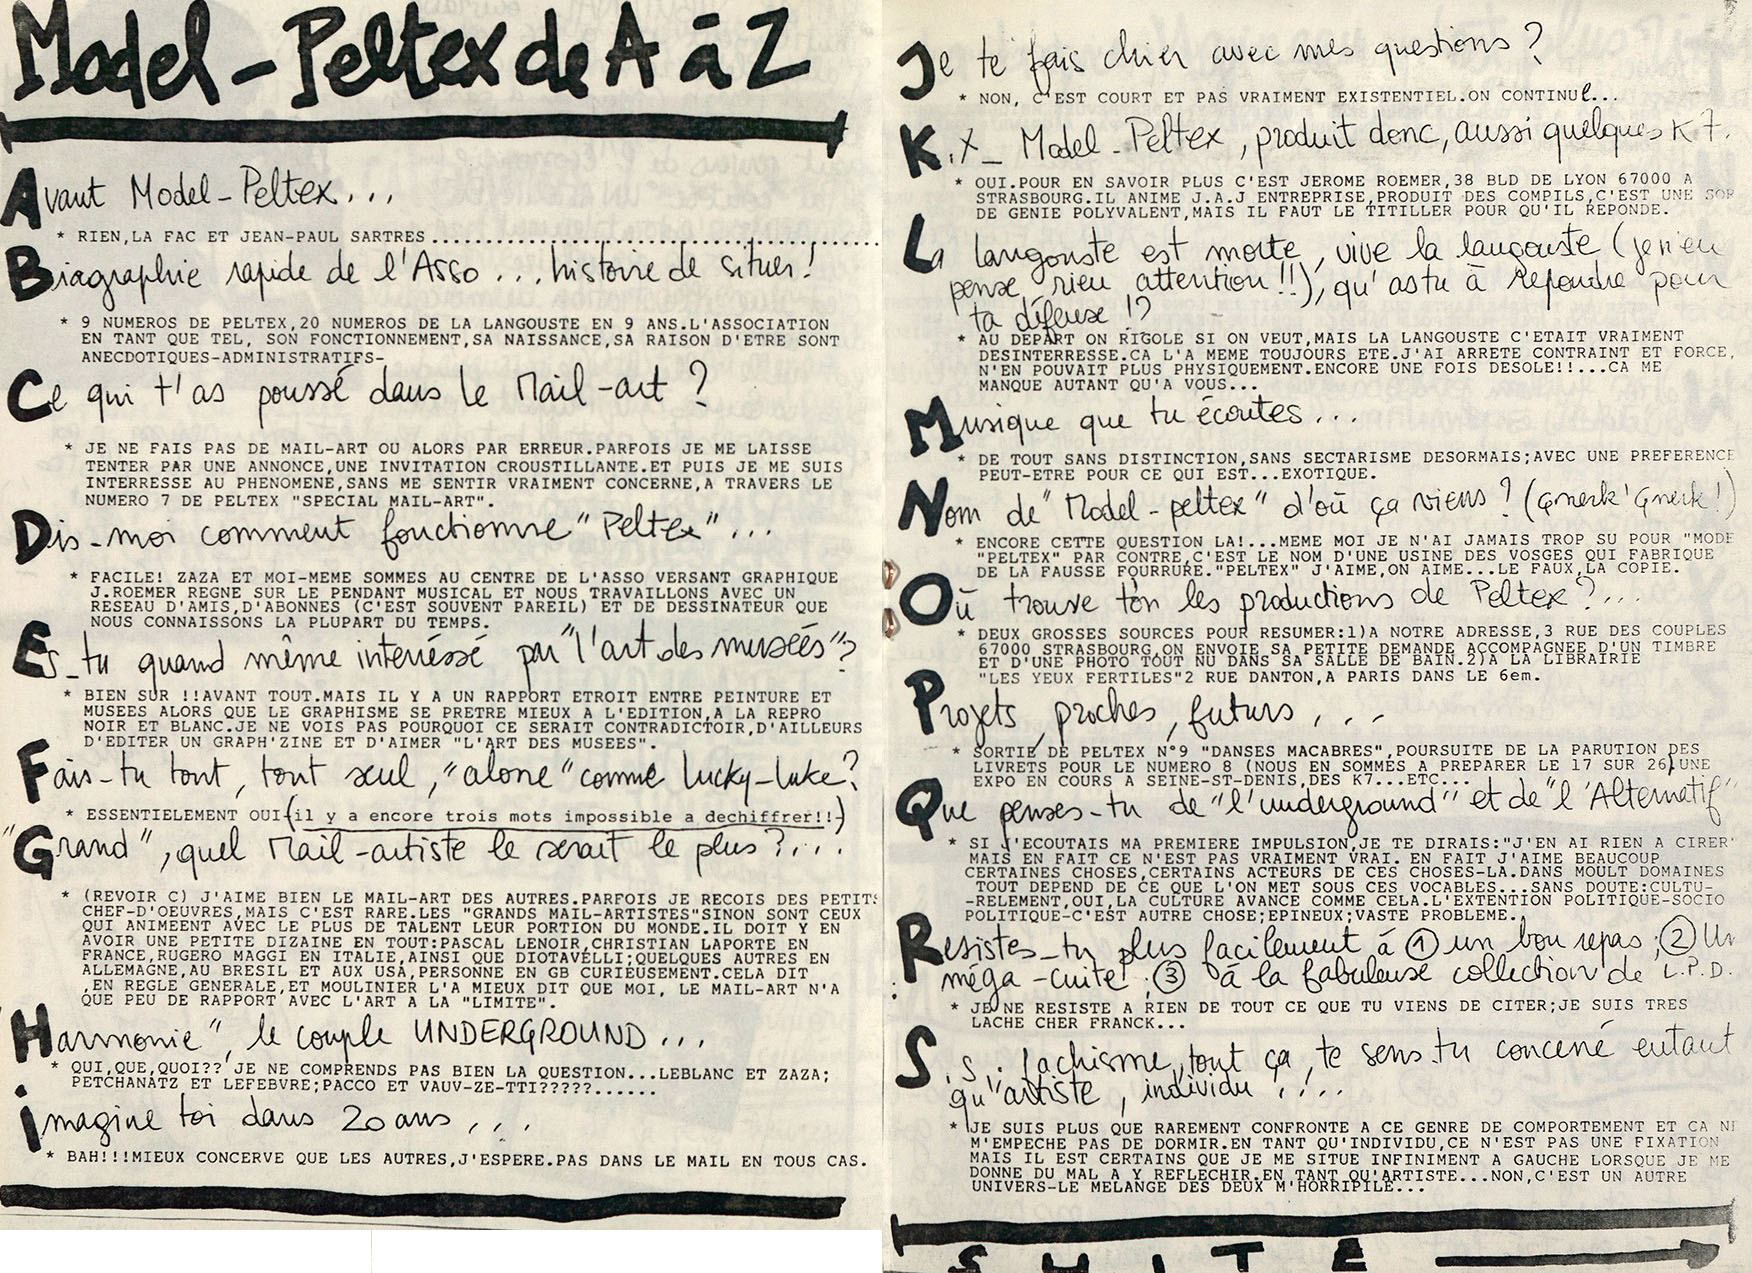 Model-Peltex de A à Z
Avant Model-Peltex...
* RIEN,LA FAC ET JEAN-PAUL SARTRES
Biagraphie rapide de l'Asso... histoire de situer!
* 9 NUMEROS DE PELTEX,20 NUMEROS DE LA LANGOUSTE EN 9 ANS.L'ASSOCIATION
EN TANT QUE TEL, SON FONCTIONNEMENT,SA NAISSANCE,SA RAISON D'ETRE SONT
ANECDOTIQUES-ADMINISTRATIFS-
Ce qui t'as poussé dans le Mail-art ?
* JE NE FAIS PAS DE MAIL-ART OU ALORS PAR ERREUR.PARFOIS JE ME LAISSE
TENTER PAR UNE ANNONCE,UNE INVITATION CROUSTILLANTE.ET PUIS JE ME SUIS
INTERRESSE AU PHENOMENE,SANS ME SENTIR VRAIMENT CONCERNE,A TRAVERS LE
NUMERO 7 DE PELTEX "SPECIAL MAIL-ART".
Dis-moi comment fonctionne "Peltex"...
* FACILE! ZAZA ET MOI-MEME SOMMES AU CENTRE DE L'ASSO VERSANT GRAPHIQUE
J.ROEMER REGNE SUR LE PENDANT MUSICAL ET NOUS TRAVAILLONS AVEC UN
RESEAU D'AMIS,D'ABONNES (C'EST SOUVENT PAREIL) ET DE DESSINATEUR QUE
NOUS CONNAISSONS LA PLUPART DU TEMPS.
Es-tu quand même interéssé par "l'art des museés"?
* BIEN SUR !!AVANT TOUT.MAIS IL Y A UN RAPPORT ETROIT ENTRE PEINTURE ET
MUSEES ALORS QUE LE GRAPHISME SE PRETRE MIEUX A L'EDITION,A LA REPRO
NOIR ET BLANC.JE NE VOIS PAS POURQUOI CE SERAIT CONTRADICTOIR,D'AILLEURS
D'EDITER UN GRAPH'ZINE ET D'AIMER "L'ART DES MUSEES".
Fais-tu tout, tout seul, "alone" comme Lucky-Luke?
* ESSENTIELEMENT OUI(il y a encore trois mots impossible a dechiffrer!!-)
"Grand", quel Mail-artiste le serait le plus?....
* (REVOIR C) J'AIME BIEN LE MAIL-ART DES AUTRES.PARFOIS JE RECOIS DES PETITS
CHEF-D'OEUVRES,MAIS C'EST RARE.LES "GRANDS MAIL-ARTISTES"SINON SONT CEUX
QUI ANIMEENT AVEC LE PLUS DE TALENT LEUR PORTION DU MONDE.IL DOIT Y EN
AVOIR UNE PETITE DIZAINE EN TOUT:PASCAL LENOIR,CHRISTIAN LAPORTE EN
FRANCE,RUGERO MAGGI EN ITALIE,AINSI QUE DIOTAVELLI;QUELQUES AUTRES EN
ALLEMAGNE,AU BRESIL ET AUX USA,PERSONNE EN GB CURIEUSEMENT.CELA DIT
,EN REGLE GENERALE,ET MOULINIER L'A MIEUX DIT QUE MOI, LE MAIL-ART N'A
QUE PEU DE RAPPORT AVEC L'ART A LA "LIMITE".
"Harmonie", le couple UNDERGROUND...
* QUI,QUE,QUOI?? JE NE COMPRENDS PAS BIEN LA QUESTION...LEBLANC ET ZAZA;
PETCHANATZ ET LEFEBVRE;PACCO ET VAUV-ZE-TTI?????......
imagine toi dans 20 ans, ...
* BAH!!!MIEUX CONCERVE QUE LES AUTRES,J'ESPERE.PAS DANS LE MAIL EN TOUS CAS.
Je te fais chier avec mes questions ?
* NON, C'EST COURT ET PAS VRAIMENT EXISTENTIEL.ON CONTINUe...
K.x_ Model-Peltex, produit donc, aussi quelques K7.
* OUI.POUR EN SAVOIR PLUS C'EST JEROME ROEMER,38 BLD DE LYON 67000 A
STRASBOURG.IL ANIME J.A.J ENTREPRISE,PRODUIT DES COMPILS,C'EST UNE SOR
DE GENIE POLYVALENT,MAIS IL FAUT LE TITILLER POUR QU'IL REPONDE.
La langouste est morte, vive la langouste (je n'en
pense rien attention!!), qu'as tu à repondre pour
ta défense !?
* AU DEPART ON RIGOLE SI ON VEUT,MAIS LA LANGOUSTE C'ETAIT VRAIMENT
DESINTERRESSE.CA L'A MEME TOUJOURS ETE.J'AI ARRETE CONTRAINT ET FORCE,
N'EN POUVAIT PLUS PHYSIQUEMENT.ENCORE UNE FOIS DESOLE!!...CA ME
MANQUE AUTANT QU'A VOUS...
Musique que tu écoutes...
* DE TOUT SANS DISTINCTION,SANS SECTARISME DESORMAIS;AVEC UNE PREFERENCE
PEUT-ETRE POUR CE QUI EST...EXOTIQUE.
Nom de "Model-peltex" d'où ça viens ? (Gnerk! Gnerk!)
* ENCORE CETTE QUESTION LA!...MEME MOI JE N'AI JAMAIS TROP SU POUR "MODE
"PELTEX" PAR CONTRE,C'EST LE NOM D'UNE USINE DES VOSGES QUI FABRIQUE
DE LA FAUSSE FOURRURE."PELTEX" J'AIME,ON AIME...LE FAUX,LA COPIE.
Où trouve t'on les productions de Peltex?...
* DEUX GROSSES SOURCES POUR RESUMER:1)A NOTRE ADRESSE,3 RUE DES COUPLES
67000 STRASBOURG,ON ENVOIE SA PETITE DEMANDE ACCOMPAGNEE D'UN TIMBRE
ET D'UNE PHOTO TOUT NU DANS SA SALLE DE BAIN.2)A LA LIBRAIRIE
"LES YEUX FERTILES"2 RUE DANTON,A PARIS DANS LE 6em.
Projets, proches, futurs, ...
* SORTIE DE PELTEX N°9 "DANSES MACABRES",POURSUITE DE LA PARUTION DES
LIVRETS POUR LE NUMERO 8 (NOUS EN SOMMES A PREPARER LE 17 SUR 26)UNE
EXPO EN COURS A SEINE-ST-DENIS,DES K7...ETC...
Que penses-tu de "l'underground" et de "l'Alternatif"
* SI J'ECOUTAIS MA PREMIERE IMPULSION,JE TE DIRAIS:"J'EN AI RIEN A CIRER"
MAIS EN FAIT CE N'EST PAS VRAIMENT VRAI. EN FAIT J'AIME BEAUCOUP
CERTAINES CHOSES,CERTAINS ACTEURS DE CES CHOSES-LA.DANS MOULT DOMAINES
TOUT DEPEND DE CE QUE L'ON MET SOUS CES VOCABLES...SANS DOUTE:CULTU-
-RELEMENT,OUI,LA CULTURE AVANCE COMME CELA.L'EXTENTION POLITIQUE-SOCIO
POLITIQUE-C'EST AUTRE CHOSE;EPINEUX;VASTE PROBLEME.
Resistes-tu plus facilement à ① un bon repas; ② Un
méga-cuite; ③ à la fabuleuse collection de L.P.D.
* JE NE RESISTE A RIEN DE TOUT CE QUE TU VIENS DE CITER;JE SUIS TRES
LACHE CHER FRANCK...
S.S. fachisme, tout ça, te sens tu concené entant
qu'artiste, individu ....
* JE SUIS PLUS QUE RAREMENT CONFRONTE A CE GENRE DE COMPORTEMENT ET CA NE
M'EMPECHE PAS DE DORMIR.EN TANT QU'INDIVIDU,CE N'EST PAS UNE FIXATION
MAIS IL EST CERTAINS QUE JE ME SITUE INFINIMENT A GAUCHE LORSQUE JE ME
DONNE DU MAL A Y REFLECHIR.EN TANT QU'ARTISTE...NON,C'EST UN AUTRE
UNIVERS-LE MELANGE DES DEUX M'HORRIPILE...
SUITE